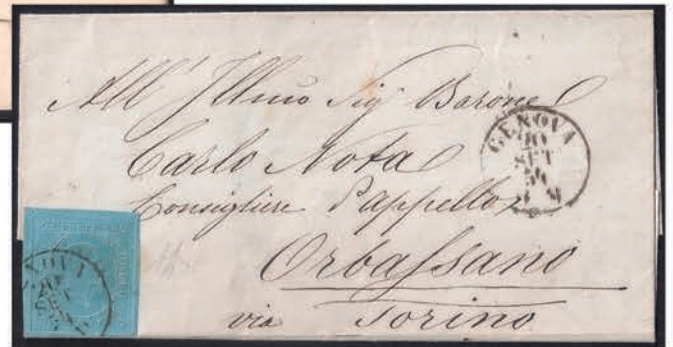 All' Illmo Sigr Barone
Carlo Nota
Consigliere d'appello
Orbassano
via Torino
GENOVA
10
SET
54